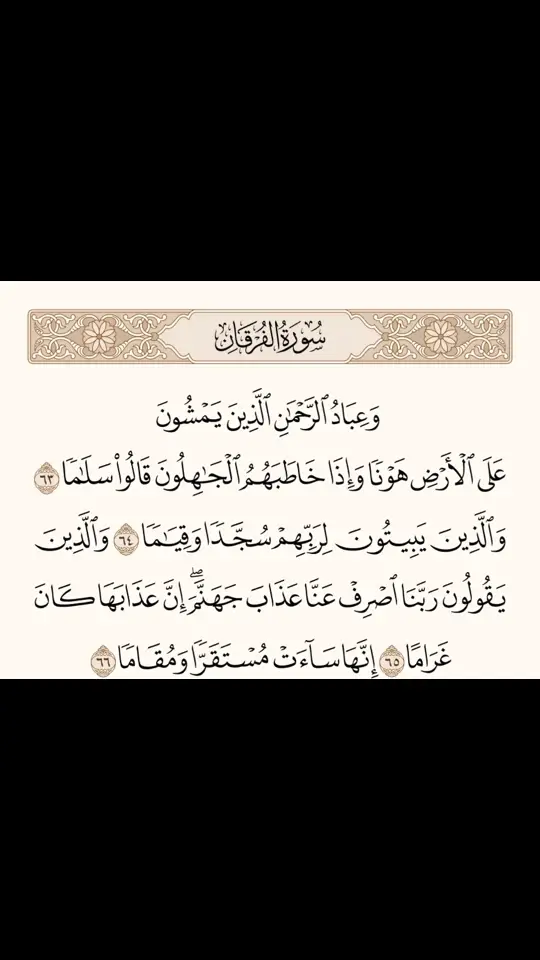 سُورَةُ الفُرْقَان
وَعِبَادُ ٱلرَّحْمَٰنِ ٱلَّذِينَ يَمْشُونَ
عَلَى ٱلْأَرْضِ هَوْنًا وَإِذَا خَاطَبَهُمُ ٱلْجَٰهِلُونَ قَالُوا۟ سَلَٰمًا ٦٣
وَٱلَّذِينَ يَبِيتُونَ لِرَبِّهِمْ سُجَّدًا وَقِيَٰمًا ٦٤ وَٱلَّذِينَ
يَقُولُونَ رَبَّنَا ٱصْرِفْ عَنَّا عَذَابَ جَهَنَّمَ ۖ إِنَّ عَذَابَهَا كَانَ
غَرَامًا ٦٥ إِنَّهَا سَآءَتْ مُسْتَقَرًّا وَمُقَامًا ٦٦